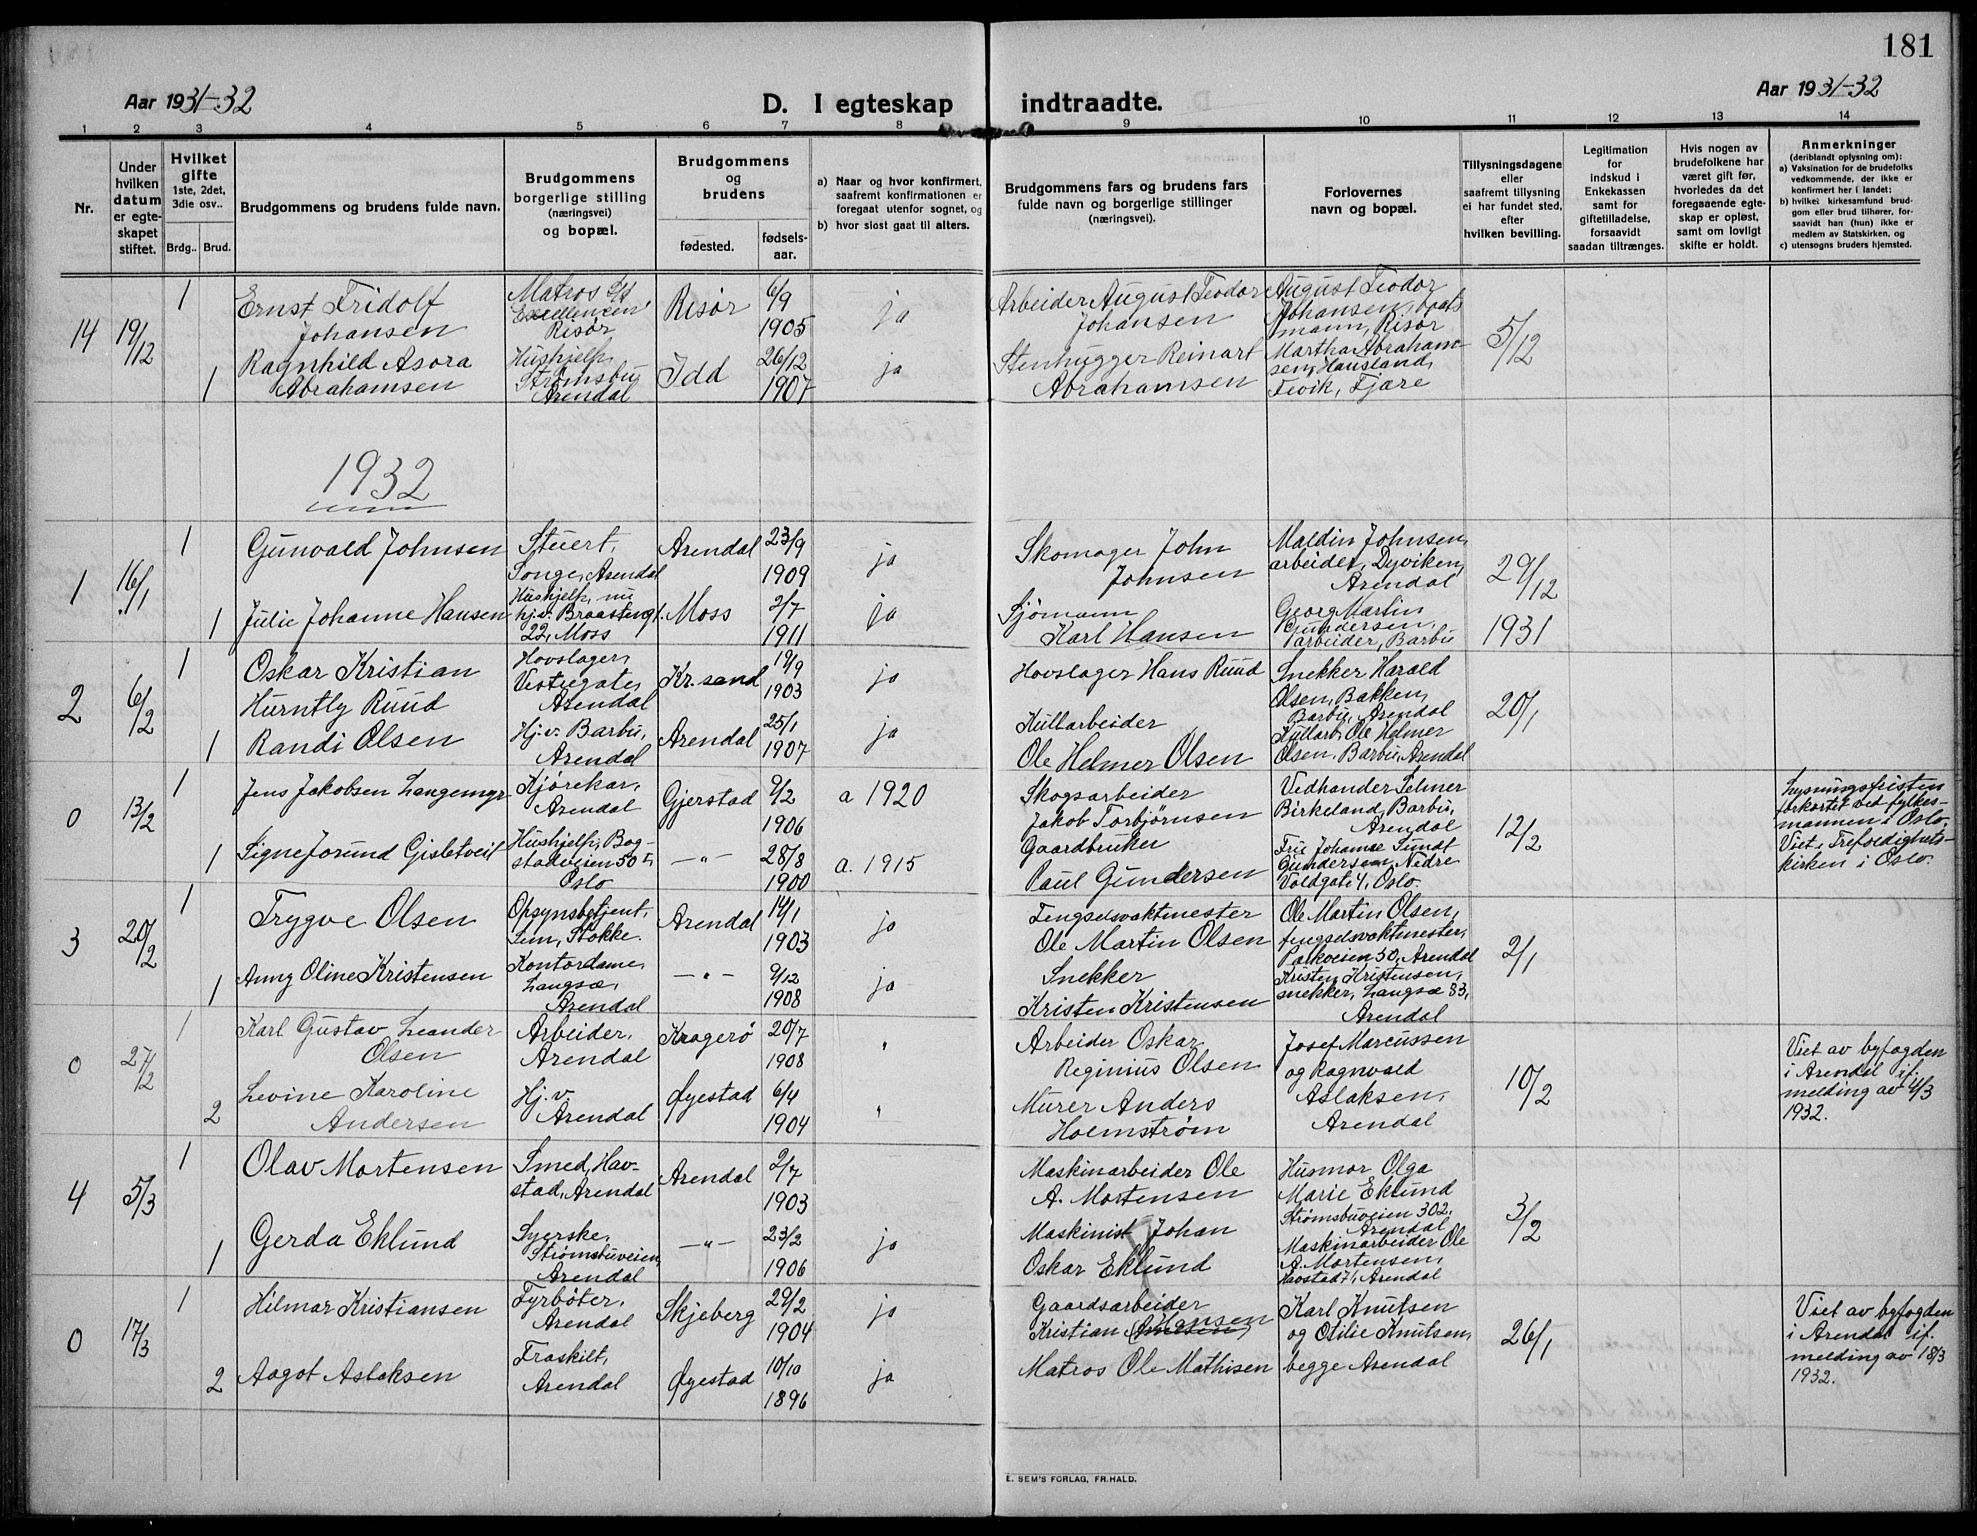 181
Aar 1931-32
D. I egteskap indtraadte.
Aar 1931-32
1 2 3 4 5 6 7 8 9 10 11 12 13 14
Nr.
Under
hvilken
datum
er egte-
skapet
stiftet.
Hvilket
gifte
1ste, 2det,
3die osv..
Brdg.. Brud.
Brudgommens og brudens fulde navn.
Brudgommens
borgerlige stilling
(næringsvei)
og bopæl.
Brudgommens
og
brudens
fødested.
fødsels-
aar.
a) Naar og hvor konfirmert,
saafremt konfirmationen er
foregaat utenfor sognet, og
b) hvor sidst gaat til alters.
Brudgommens fars og brudens fars
fulde navn og borgerlige stillinger
(næringsvei).
Forlovernes
navn og bopæl.
Tillysningsdagene
eller
saafremt tillysning
ei har fundet sted,
efter
hvilken bevilling.
Legitimation
for
indskud i
Enkekassen
samt for
giftetilladelse,
forsaavidt
saadan tiltrænges.
Hvis nogen av
brudefolkene har
været gift før,
hvorledes da det
foregaaende egte-
skap er opløst,
samt om lovligt
skifte er holdt.
Anmerkninger
(deriblandt oplysning om):
a) Vaksination for de brudefolks
vedkommende, der ikke er
konfirmert her i landet;
b) hvilket kirkesamfund brud-
gom eller brud tilhører, for-
saavidt han (hun) ikke er
medlem av Statskirken, og
c) utensogns bruders hjemsted.
14
19/12
1
Ernst Fridolf
Johansen
Matros S/S
Excellencen
Risør
Risør
6/9
1905
ja
Arbeider August Teodor
Johansen
August Teodor
Johansen, baats
mann, Risør
5/12
1
Ragnhild Asora
Abrahamsen
Hushjelp,
Strømsbu
Arendal
Idd
26/12
1907
ja
Stenhugger Reinart
Abrahamsen
Martha Abraham-
sen, Hausland,
Fevik, Fjære
1932
1
16/1
1
Gunvald Johnsen
Stuert,
Songe, Arendal
Arendal
23/9
1909
ja
Skomager John
Johnsen
Maldin Johnsen,
arbeider, Dyviken,
Arendal
29/12
1931
1
Julie Johanne Hansen
Hushjelp, nu
hj.v. Braastengt.
22, Moss
Moss
2/7
1911
ja
Sjømann
Karl Hansen
Georg Martin
Gundersen,
arbeider, Barbu
2
6/2
1
Oskar Kristian
Hurntly Ruud
Hovslager,
Vestregate,
Arendal
Kr.sand
19/9
1903
ja
Hovslager Hans Ruud
Snekker Harald
Olsen, Bakken,
Barbu, Arendal
20/1
1
Randi Olsen
Hj.v. Barbu,
Arendal
Arendal
25/1
1907
ja
Kullarbeider
Ole Helmer Olsen
Kullarb. Ole Helmer
Olsen, Barbu, Arendal
0
13/2
1
Jens Jakobsen Langemyr
Kjørekar,
Arendal
Gjerstad
9/2
1906
a 1920
Skogsarbeider
Jakob Torbjørnsen
Vedhandler Telmer
Birkeland, Barbu,
Arendal
12/2
Lysningsfristen
forkortet ved fylkes-
mannen i Oslo.
Viet i Trefoldighets-
kirken i Oslo.
1
Signe Jorund Gisletveit
Hushjelp, Bog-
stadveien 50 V,
Oslo
-"-
28/8
1900
a. 1915
Gaardbruker
Paul Gundersen
Frie Johanne Sundt
Gundersen, Nedre
Voldgate 4, Oslo.
3
20/2
1
Trygve Olsen
Opsynsbetjent,
Sem, Stokke.
Arendal
14/1
1903
ja
Fengselsvaktmester
Ole Martin Olsen
Ole Martin Olsen,
fengselsvaktmester,
Parkveien 30, Arendal
2/1
1
Anny Oline Kristensen
Kontordame,
Langsæ,
Arendal
-"-
9/12
1908
ja
Snekker
Kristen Kristensen
Kristen Kristensen,
snekker, Langsæ 83,
Arendal
0
27/2
1
Karl Gustav Leander
Olsen
Arbeider,
Arendal
Kragerö
20/7
1908
"
Arbeider Oskar
Reginius Olsen
Josef Marcussen
og Ragnvald
Aslaksen,
Arendal
10/2
Viet av byfogden
i Arendal if.
melding av 4/3
1932.
2
Levine Karoline
Andersen
Hj.v.
Arendal
Øyestad
6/4
1904
"
Murer Anders
Holmstrøm
4
5/3
1
Olav Mortensen
Smed, Hav-
stad, Arendal
Arendal
2/7
1903
Maskinarbeider Ole
A. Mortensen
Husmor Olga
Marie Eklund
Strømsbuveien 302,
Arendal
3/2
1
Gerda Eklund
Syerske,
Strømsbuveien,
Arendal
-"-
23/2
1906
ja
Maskinist Johan
Oskar Eklund
Maskinarbeider Ole
A. Mortensen,
Havstad 71, Arendal
0
17/3
1
Hilmar Kristiansen
Fyrbøter,
Arendal
Skjeberg
29/2
1904
ja
Gaardsarbeider
Kristian Hansen
Karl Knutsen
og Otilie Knutsen,
begge Arendal
26/1
Viet av byfogden
i Arendal if.
melding av 18/3
1932.
2
Aagot Aslaksen
Fraskilt,
Arendal
Øyestad
10/10
1896
ja
Matros Ole Mathisen
E. SEM'S FORLAG, FR.HALD.